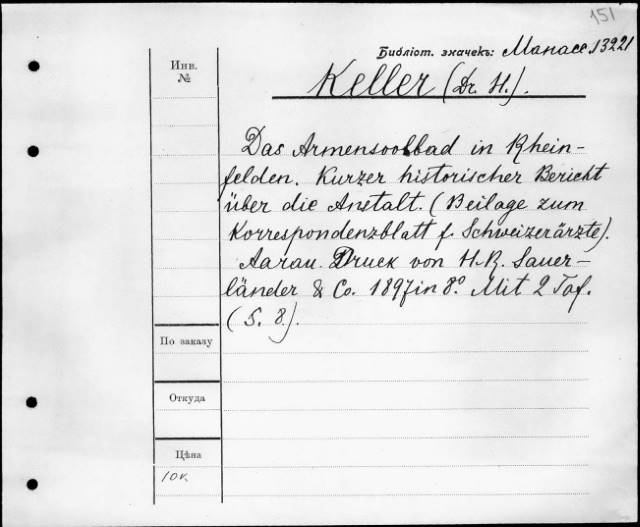 151
Библіот. значекъ: Манасе 13221
Инв.
№
Keller (Dr. H.).
Das Armensoolbad in Rhein-
felden. Kurzer historischer Bericht
über die Anstalt. (Beilage zum
Korrespondenzblatt f. Schweizerärzte).
Aarau. Druck von H. R. Sauer-
länder & Co. 1897 in 8.º Mit 2 Taf.
(S. 8.).
По заказу
Откуда
Цѣна
10к.